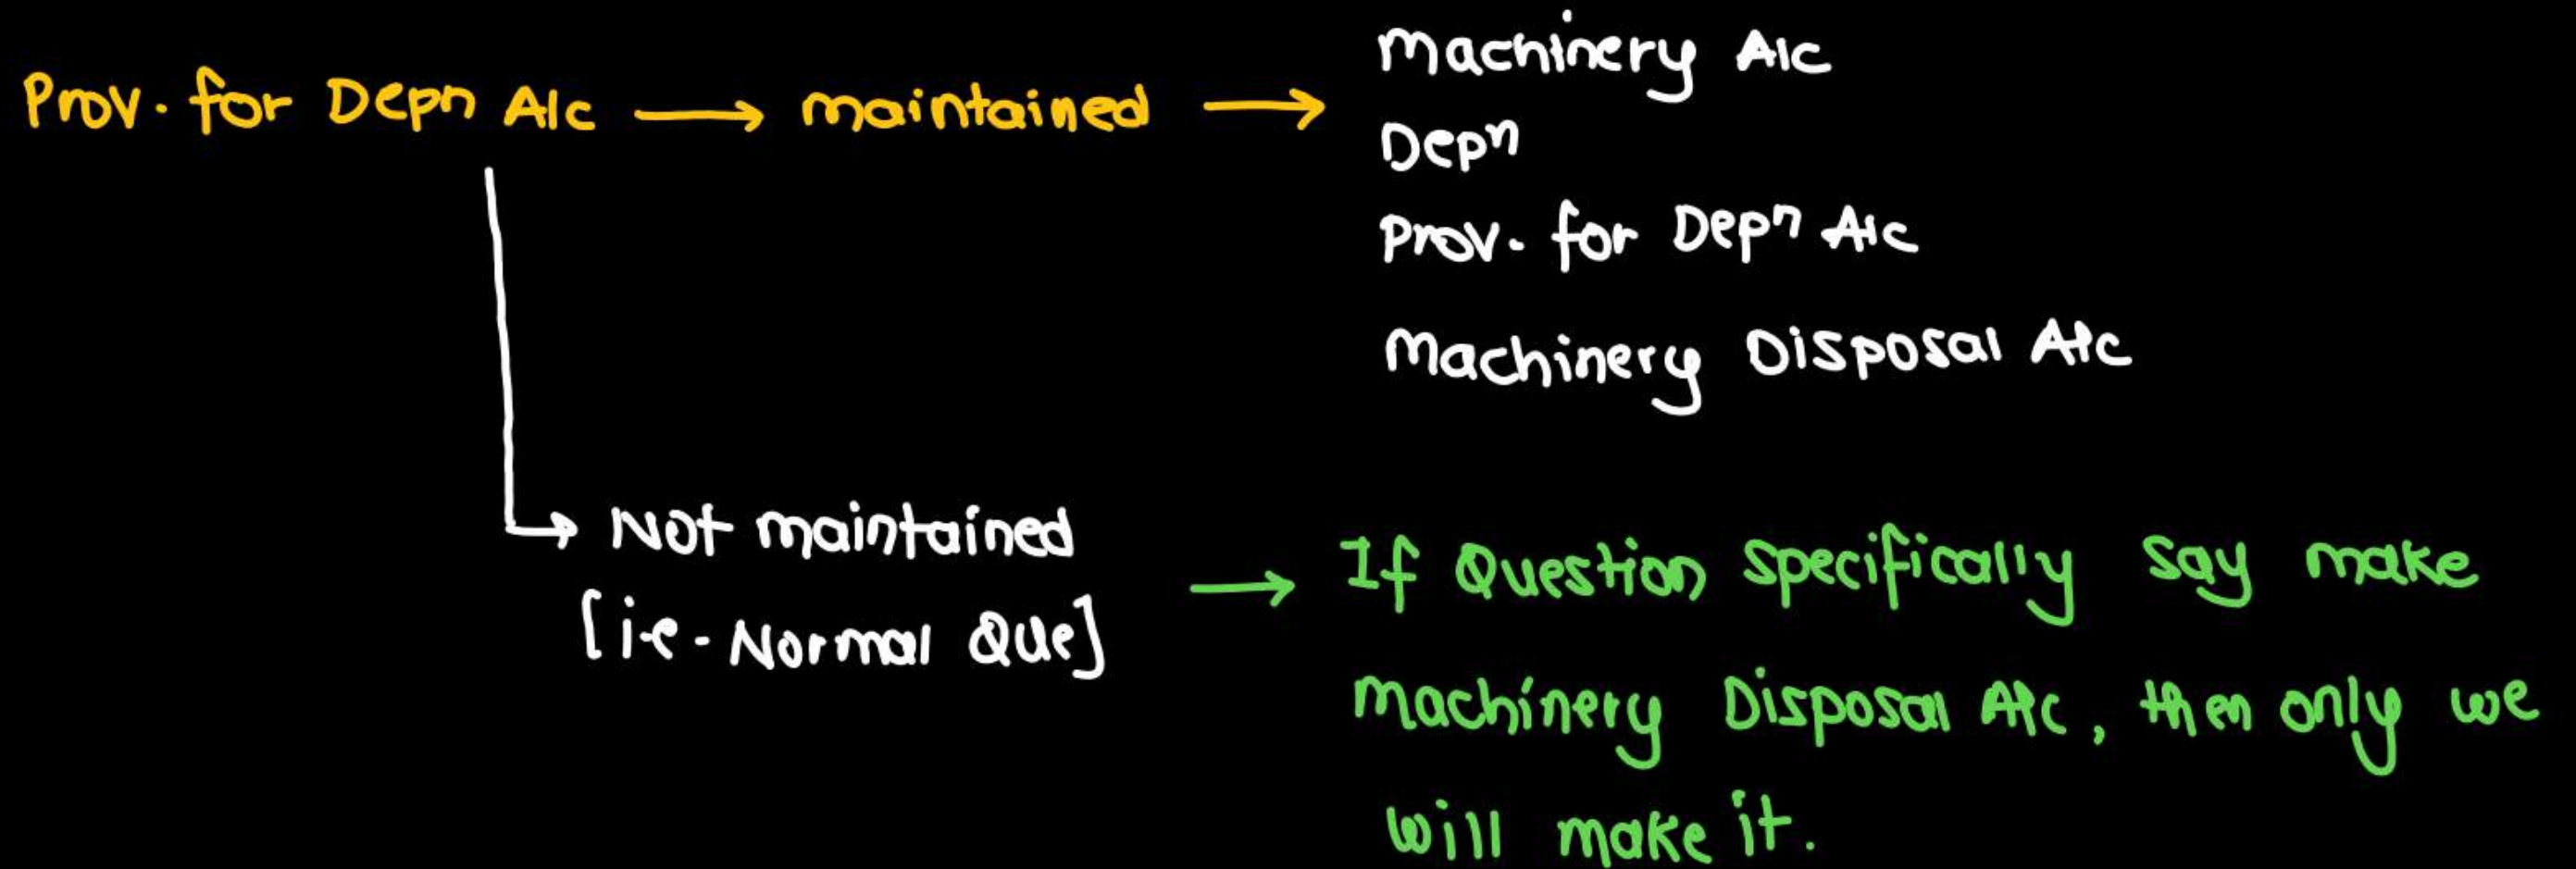 Prov. for Depn A/c → maintained →
Machinery A/c
Depn
Prov. for Depn A/c
Machinery Disposal A/c
Not maintained
[i.e - Normal Que]
→ If Question specifically say make
Machinery Disposal A/c, then only we
will make it.